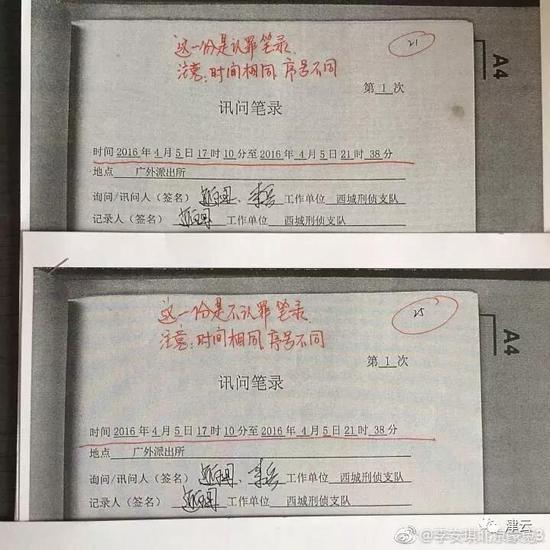 这一份是认罪笔录
注意:时间相同,序号不同
21
A4
第 1 次
讯问笔录
时间 2016 年 4 月 5 日 17 时 10 分至 2016 年 4 月 5 日 21 时 38 分
地点 广外派出所
询问/讯问人(签名) 、 工作单位 西城刑侦支队
记录人(签名) 工作单位 西城刑侦支队
这一份是不认罪笔录
注意:时间相同,序号不同
25
A4
第 1 次
讯问笔录
时间 2016 年 4 月 5 日 17 时 10 分至 2016 年 4 月 5 日 21 时 38 分
地点 广外派出所
询问/讯问人(签名) 、 工作单位 西城刑侦支队
记录人(签名) 工作单位 西城刑侦支队
津云